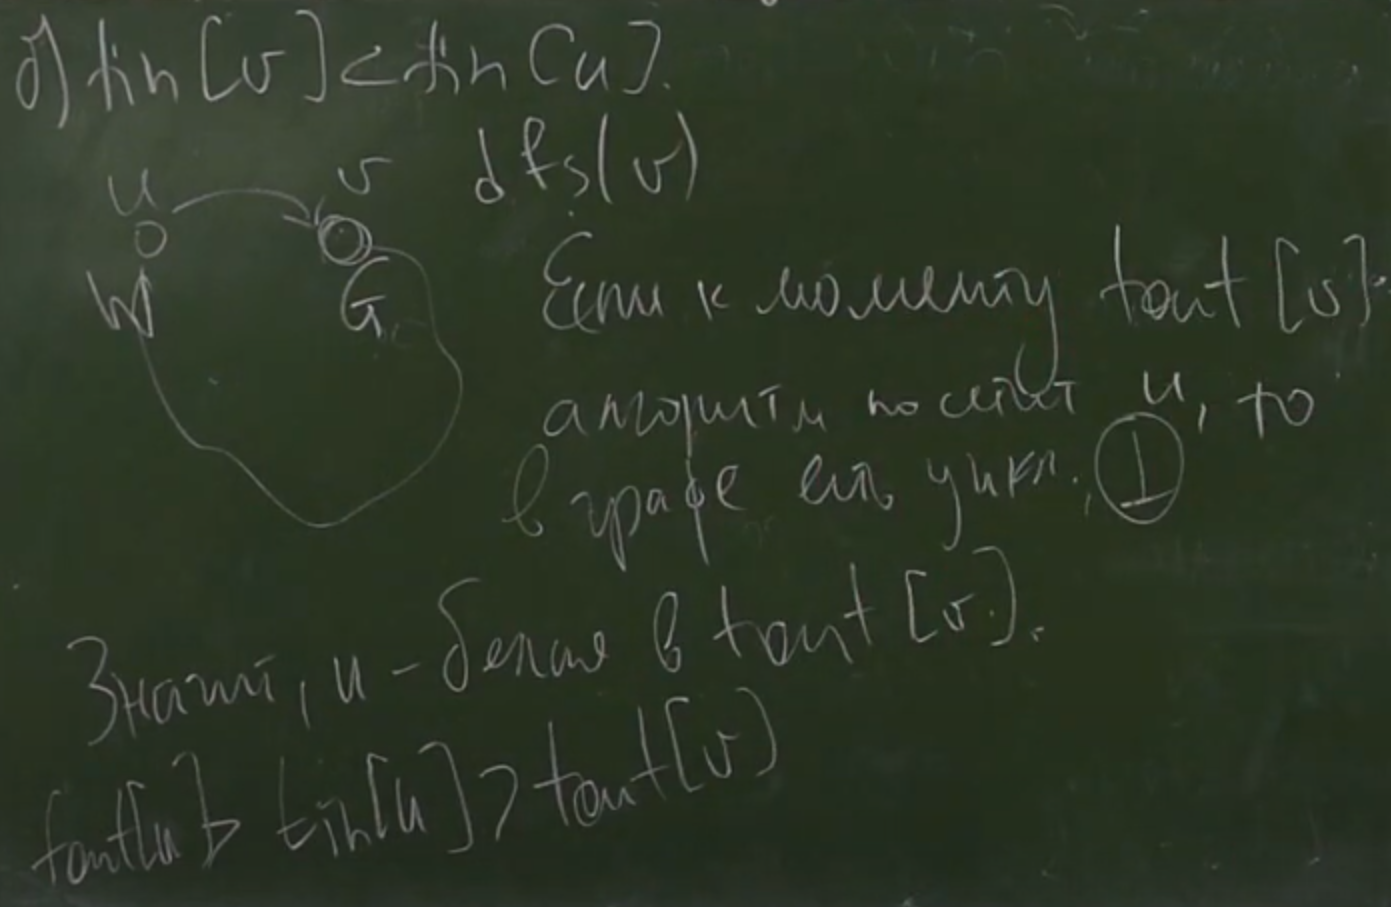 б) tin[v]<tin[u].
dfs(v)
u v
W G
Если к моменту tout[v]
алгоритм посетит u, то
в графе есть цикл. ⊥
Значит, u - белая в tout[v].
tout[u] > tin[u] > tout[v]